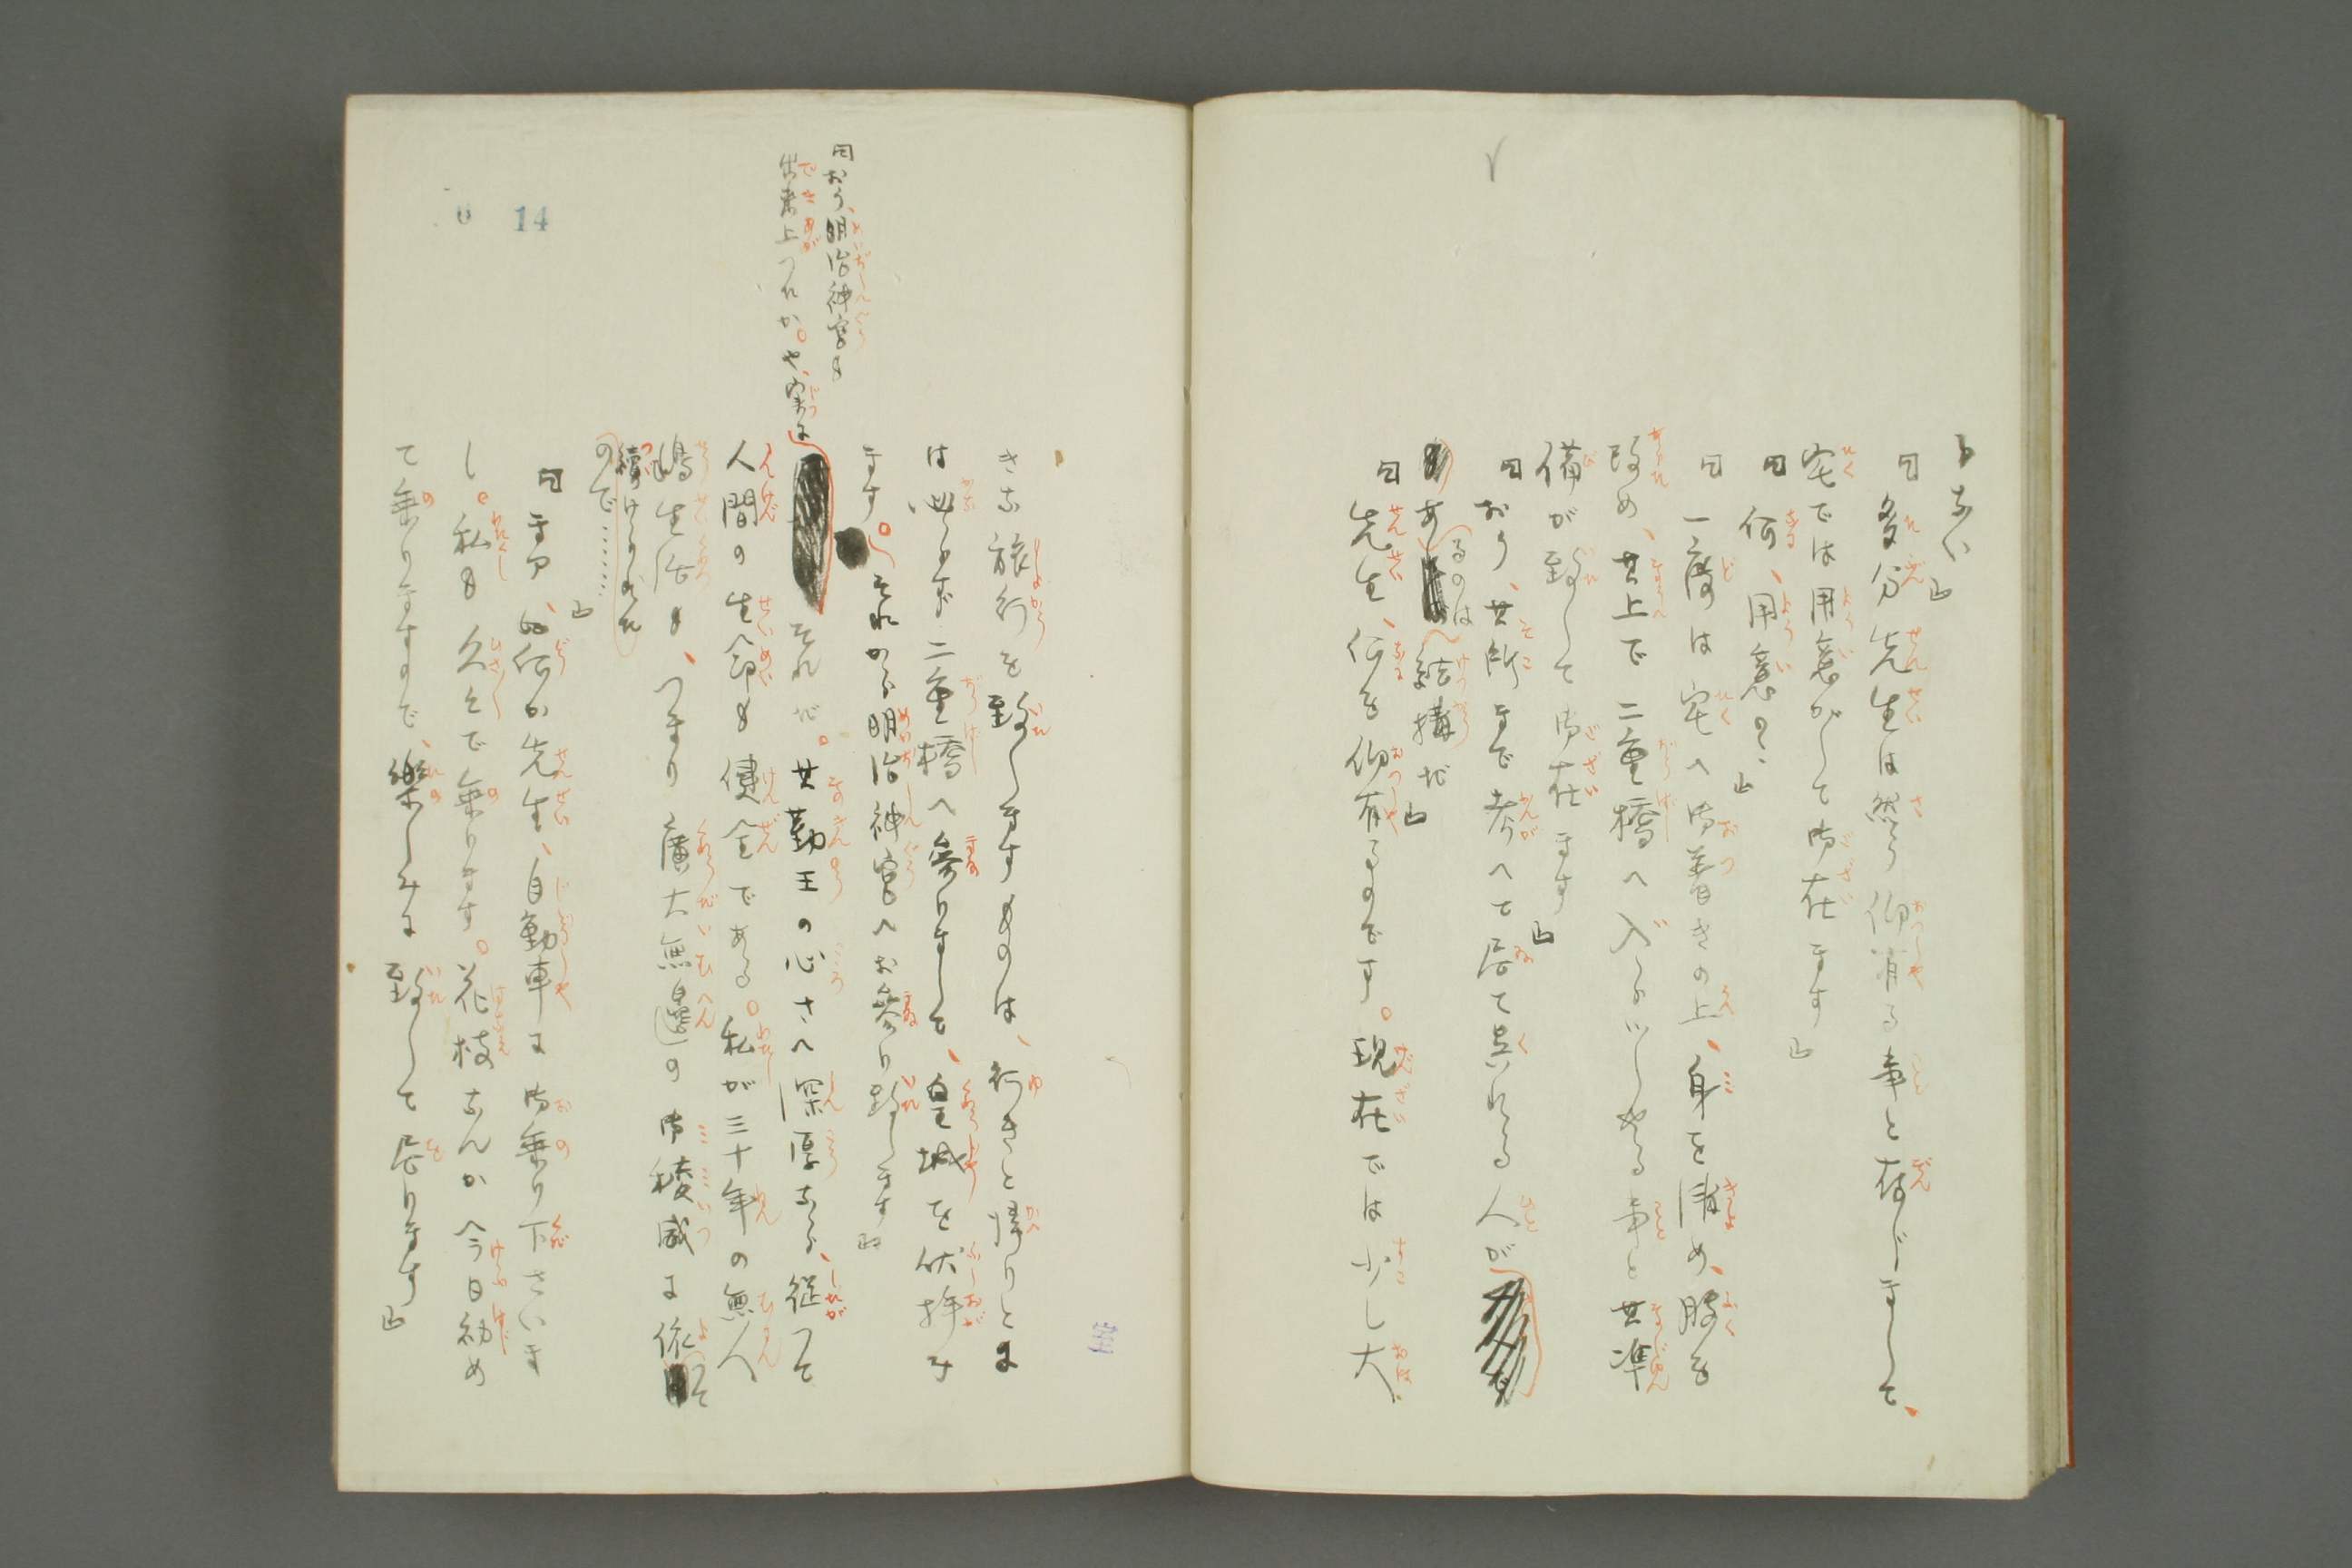 らない」
「多分先生は然う仰有る事と存じまして、
宅では用意がして御在ます」
「何、用意？」
「一應は宅へ御着きの上、身を淸め、服も
改め、其上で二重橋へ入らツしやる事と其準
備が致して御在ます」
「おう、其所まで考へて居て呉れる人が
あるのは結構だ」
「先生、何を仰有るのです。現在では少し大
きな旅行を致しますものは、行きと歸りとに
は必らず二重橋へ參りまして、皇城を伏拜み
ます。それから明治神宮へお參り致します」
「おう、明治神宮も
出來上つたか。や、實は
それだ。其勤王の心さへ深厚なら、從つて
人間の生命も健全である。私が三十年の無人
島生活も、つまり廣大無邊の御稜威に依つて
續けられた
ので……」
「まア、何か先生、自動車に御乘り下さいま
し。私も久々で乘ります。花枝なんか今日初め
て乘りますので、樂しみに致して居ります」
14
6